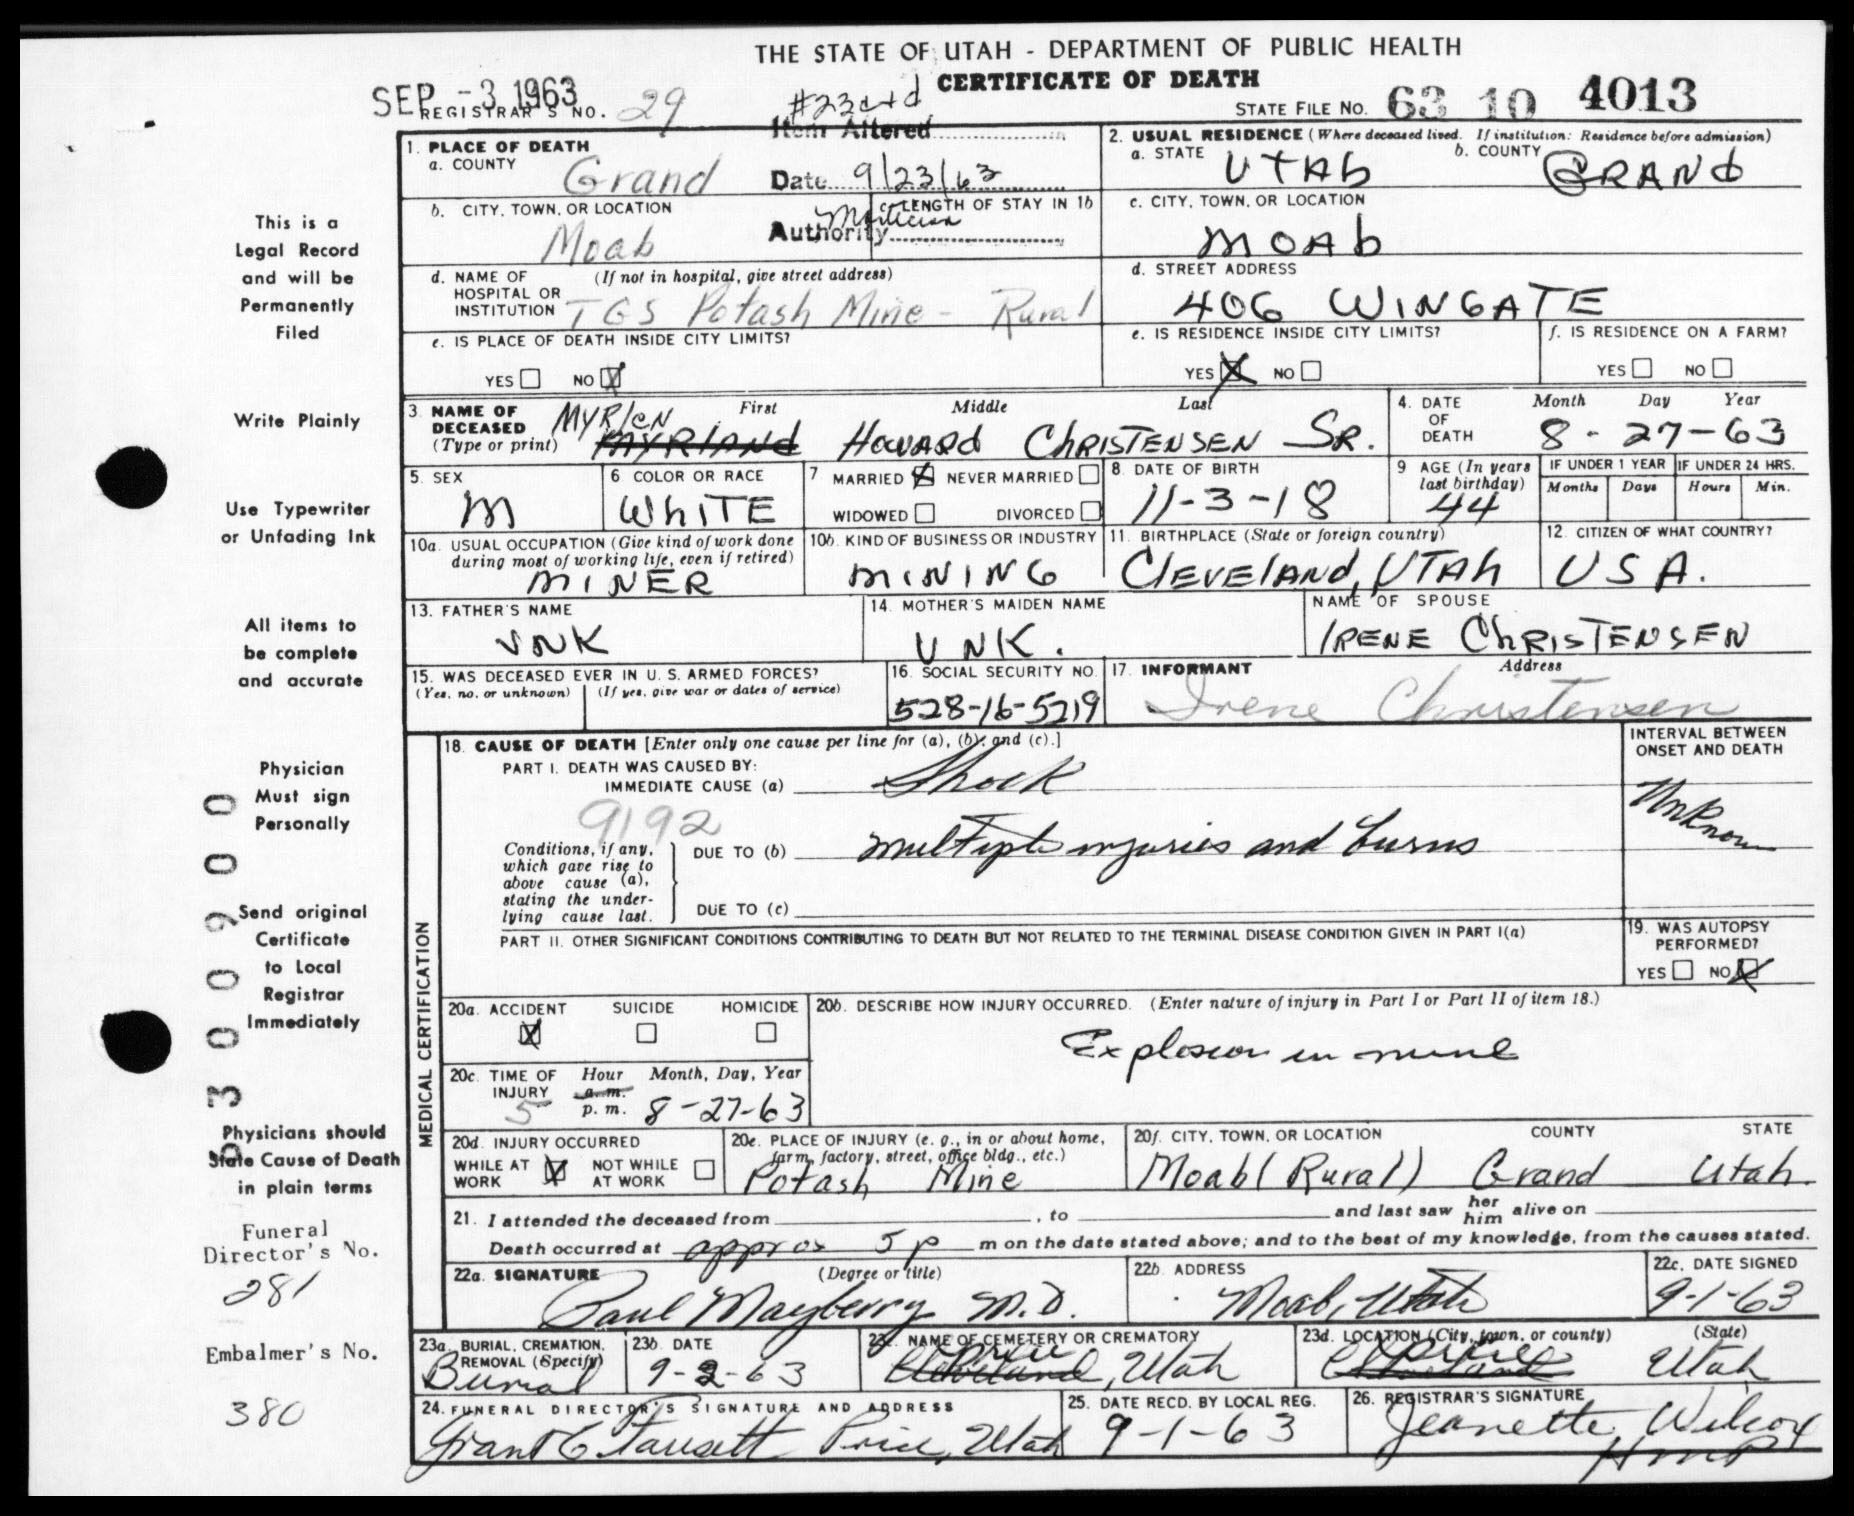 THE STATE OF UTAH - DEPARTMENT OF PUBLIC HEALTH
CERTIFICATE OF DEATH
SEP -3 1963
REGISTRAR'S NO. 29
#23c+d
Item Altered
Date 9/23/63
Authority Mortician
STATE FILE NO. 63 10 4013
1. PLACE OF DEATH
a. COUNTY Grand
b. CITY, TOWN, OR LOCATION Moab
c. LENGTH OF STAY IN 1b
d. NAME OF HOSPITAL OR INSTITUTION (If not in hospital, give street address)
TGS Potash Mine - Rural
e. IS PLACE OF DEATH INSIDE CITY LIMITS?
YES NO X
2. USUAL RESIDENCE (Where deceased lived. If institution: Residence before admission)
a. STATE UTAh
b. COUNTY GRANd
c. CITY, TOWN, OR LOCATION
MOAb
d. STREET ADDRESS
406 WINGATE
e. IS RESIDENCE INSIDE CITY LIMITS?
YES X NO
f. IS RESIDENCE ON A FARM?
YES NO
3. NAME OF DECEASED (Type or print)
First Middle Last
MYRlEN
MYRlANd HOWARd ChRISTENSEN SR.
4. DATE OF DEATH Month Day Year
8-27-63
5. SEX
M
6 COLOR OR RACE
WhITE
7 MARRIED X NEVER MARRIED
WIDOWED DIVORCED
8. DATE OF BIRTH
11-3-18
9 AGE (In years last birthday)
44
IF UNDER 1 YEAR IF UNDER 24 HRS.
Months Days Hours Min.
10a. USUAL OCCUPATION (Give kind of work done during most of working life, even if retired)
MINER
10b. KIND OF BUSINESS OR INDUSTRY
MINING
11. BIRTHPLACE (State or foreign country)
ClEVElANd, UTAh
12. CITIZEN OF WHAT COUNTRY?
USA.
13. FATHER'S NAME
UNK
14. MOTHER'S MAIDEN NAME
UNK.
NAME OF SPOUSE
IRENE ChRISTENSEN
15. WAS DECEASED EVER IN U. S. ARMED FORCES?
(Yes, no, or unknown) (If yes, give war or dates of service)
16. SOCIAL SECURITY NO.
528-16-5219
17. INFORMANT Address
Irene Christensen
MEDICAL CERTIFICATION
18. CAUSE OF DEATH [Enter only one cause per line for (a), (b), and (c).]
PART I. DEATH WAS CAUSED BY:
IMMEDIATE CAUSE (a) Shock
9192
Conditions, if any, which gave rise to above cause (a), stating the underlying cause last.
DUE TO (b) multiple injuries and burns
DUE TO (c)
INTERVAL BETWEEN ONSET AND DEATH
Unknown
PART II. OTHER SIGNIFICANT CONDITIONS CONTRIBUTING TO DEATH BUT NOT RELATED TO THE TERMINAL DISEASE CONDITION GIVEN IN PART I(a)
19. WAS AUTOPSY PERFORMED?
YES NO X
20a. ACCIDENT SUICIDE HOMICIDE
X
20b. DESCRIBE HOW INJURY OCCURRED. (Enter nature of injury in Part I or Part II of item 18.)
Explosion in mine
20c. TIME OF INJURY Hour Month, Day, Year
5 a.m. p.m. 8-27-63
20d. INJURY OCCURRED
WHILE AT WORK X NOT WHILE AT WORK
20e. PLACE OF INJURY (e. g., in or about home, farm, factory, street, office bldg., etc.)
Potash Mine
20f. CITY, TOWN, OR LOCATION COUNTY STATE
Moab (Rural) Grand Utah.
21. I attended the deceased from , to and last saw her him alive on
Death occurred at approx 5 p m on the date stated above; and to the best of my knowledge, from the causes stated.
22a. SIGNATURE (Degree or title)
Paul Mayberry M.D.
22b. ADDRESS
Moab, Utah
22c. DATE SIGNED
9-1-63
23a. BURIAL, CREMATION, REMOVAL (Specify)
Burial
23b. DATE
9-2-63
23c. NAME OF CEMETERY OR CREMATORY
Price
Cleveland, Utah
23d. LOCATION (City, town, or county) (State)
Price
Cleveland Utah
24. FUNERAL DIRECTOR'S SIGNATURE AND ADDRESS
Grant C Fausett Price, Utah
25. DATE RECD. BY LOCAL REG.
9-1-63
26. REGISTRAR'S SIGNATURE
Jeanette Wilcox
This is a
Legal Record
and will be
Permanently
Filed
Write Plainly
Use Typewriter
or Unfading Ink
All items to
be complete
and accurate
Physician
Must sign
Personally
Send original
Certificate
to Local
Registrar
Immediately
Physicians should
State Cause of Death
in plain terms
Funeral
Director's No.
281
Embalmer's No.
380